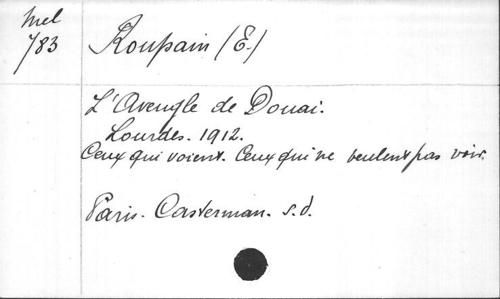 Mel
783
Roupain (E.)
L'Aveugle de Douai.
Lourdes. 1912.
Ceux qui voient. Ceux qui ne veulent pas voir.
Paris. Casterman. s.d.